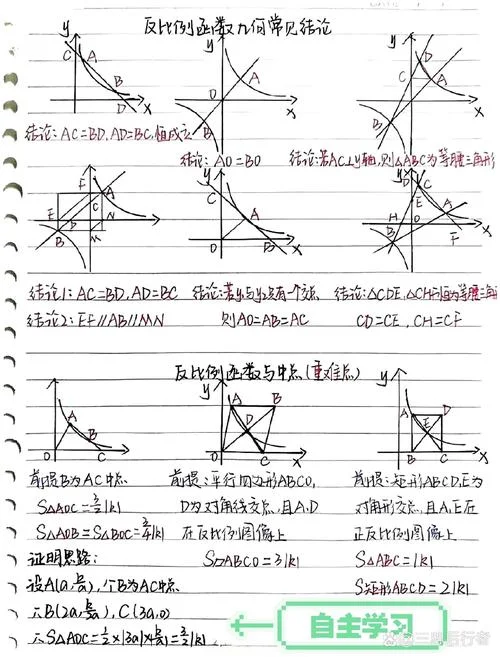 反比例函数几何常见结论
结论：AC=BD，AD=BC，恒成立
结论：AO=BO
结论：若AC⊥y轴，则△ABC为等腰三角形
结论1：AC=BD，AD=BC
结论2：EF//AB//MN
结论：若y1与y2只有一个交点
则AO=AB=AC
结论：△CDE，△CHF恒为等腰三角
CD=CE，CH=CF
反比例函数与中点（重难点）
前提B为AC中点
S△AOC=3/2|k|
S△AOB=S△BOC=3/4|k|
证明思路：
设A(a, k/a)，个B为AC中点
∴B(2a, k/2a)，C(3a,0)
∴S△AOC=1/2×|3a|×|k/a|=3/2|k|
前提：平行四边形ABCO，
D为对角线交点，且A、D
在反比例图像上
S▱ABCO=3|k|
前提：矩形ABCD，E为
对角形交点，且A、E在
正反比例图像上
S△ABC=|k|
S矩形ABCD=2|k|
自主学习